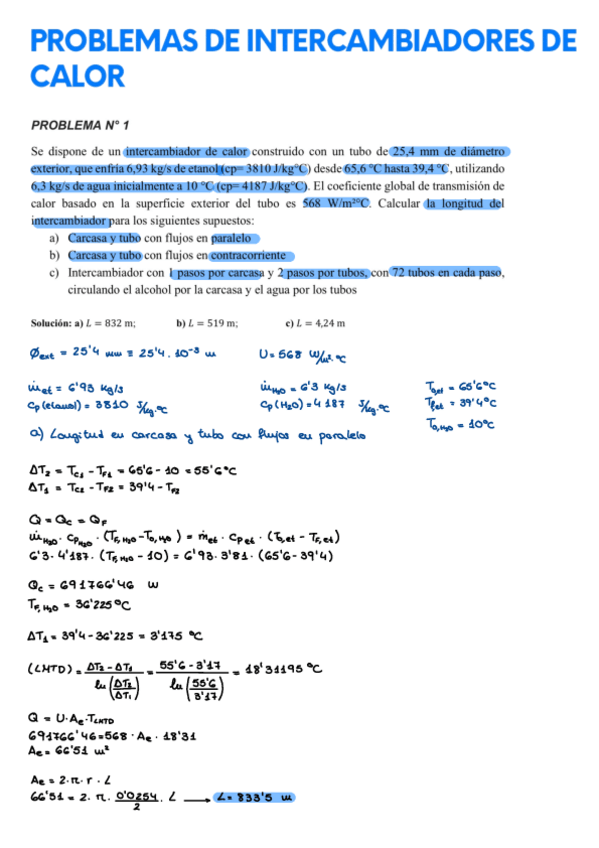 PROBLEMAS DE INTERCAMBIADORES DE
CALOR
PROBLEMA N° 1
Se dispone de un intercambiador de calor construido con un tubo de 25,4 mm de diámetro
exterior, que enfría 6,93 kg/s de etanol (cp= 3810 J/kg°C) desde 65,6 °C hasta 39,4 °C, utilizando
6,3 kg/s de agua inicialmente a 10 °C (cp= 4187 J/kg°C). El coeficiente global de transmisión de
calor basado en la superficie exterior del tubo es 568 W/m²°C. Calcular la longitud del
intercambiador para los siguientes supuestos:
a) Carcasa y tubo con flujos en paralelo
b) Carcasa y tubo con flujos en contracorriente
c) Intercambiador con 1 pasos por carcasa y 2 pasos por tubos, con 72 tubos en cada paso,
circulando el alcohol por la carcasa y el agua por los tubos
Solución: a) L = 832 m; b) L = 519 m; c) L = 4,24 m
Øext = 25'4 mm = 25'4 . 10⁻³ m U = 568 W/m².°C
ṁet = 6'93 kg/s ṁH₂O = 6'3 kg/s T0,et = 65'6°C
Cp(etanol) = 3810 J/kg.°C Cp(H₂O) = 4187 J/kg.°C Tf,et = 39'4°C
T0,H₂O = 10°C
a) Longitud en carcasa y tubo con flujos en paralelo
ΔT₂ = Tc₁ - TF₁ = 65'6 - 10 = 55'6°C
ΔT₁ = Tc₂ - TF₂ = 39'4 - TF₂
Q = Qc = QF
ṁH₂O . CpH₂O . (TF,H₂O - T0,H₂O) = ṁet . Cpet . (T0,et - TF,et)
6'3 . 4'187 . (TF,H₂O - 10) = 6'93 . 3'81 . (65'6 - 39'4)
Qc = 691766'46 W
TF,H₂O = 36'225°C
ΔT₁ = 39'4 - 36'225 = 3'175 °C
(LMTD) = ΔT₂ - ΔT₁ / ln(ΔT₂/ΔT₁) = 55'6 - 3'17 / ln(55'6/3'17) = 18'31195 °C
Q = U . Ae . TLMTD
691766'46 = 568 . Ae . 18'31
Ae = 66'51 m²
Ae = 2 . π . r . L
66'51 = 2 . π . 0'0254/2 . L → L = 833'5 m